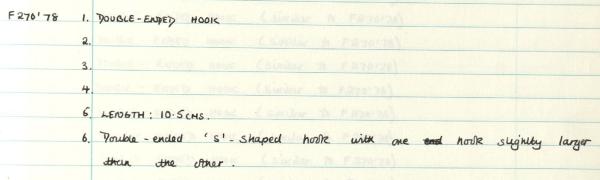 F270'78 1. DOUBLE-ENDED HOOK
2.
3.
4.
5. LENGTH: 10.5CMS.
6. Double-ended 's'-shaped hook with one end hook slightly larger
than the other.